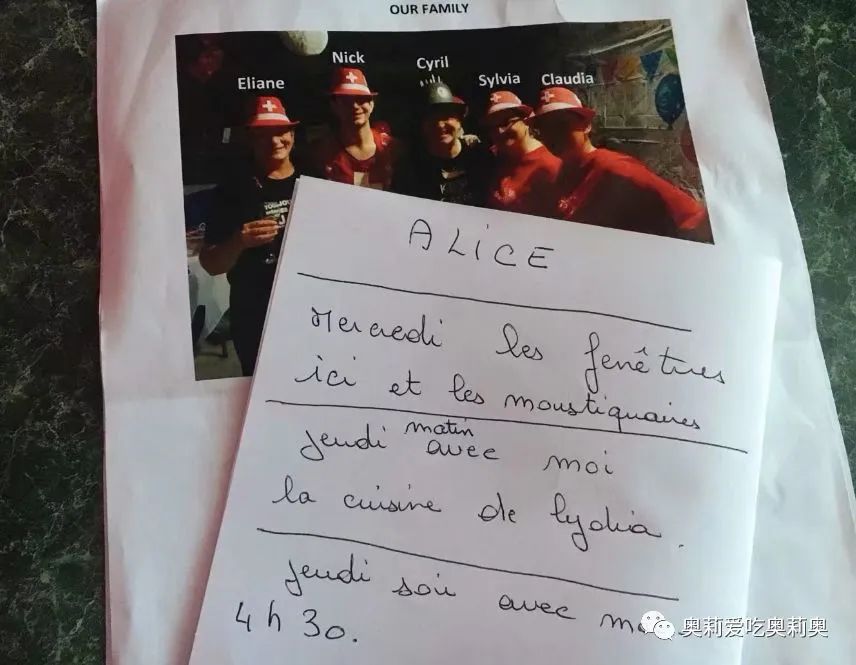 OUR FAMILY
Eliane Nick Cyril Sylvia Claudia
ALICE
Mercredi les fenêtres
ici et les moustiquaires
jeudi matin avec moi
la cuisine de lydia.
jeudi soir avec
4 h 30.
奥莉爱吃奥莉奥